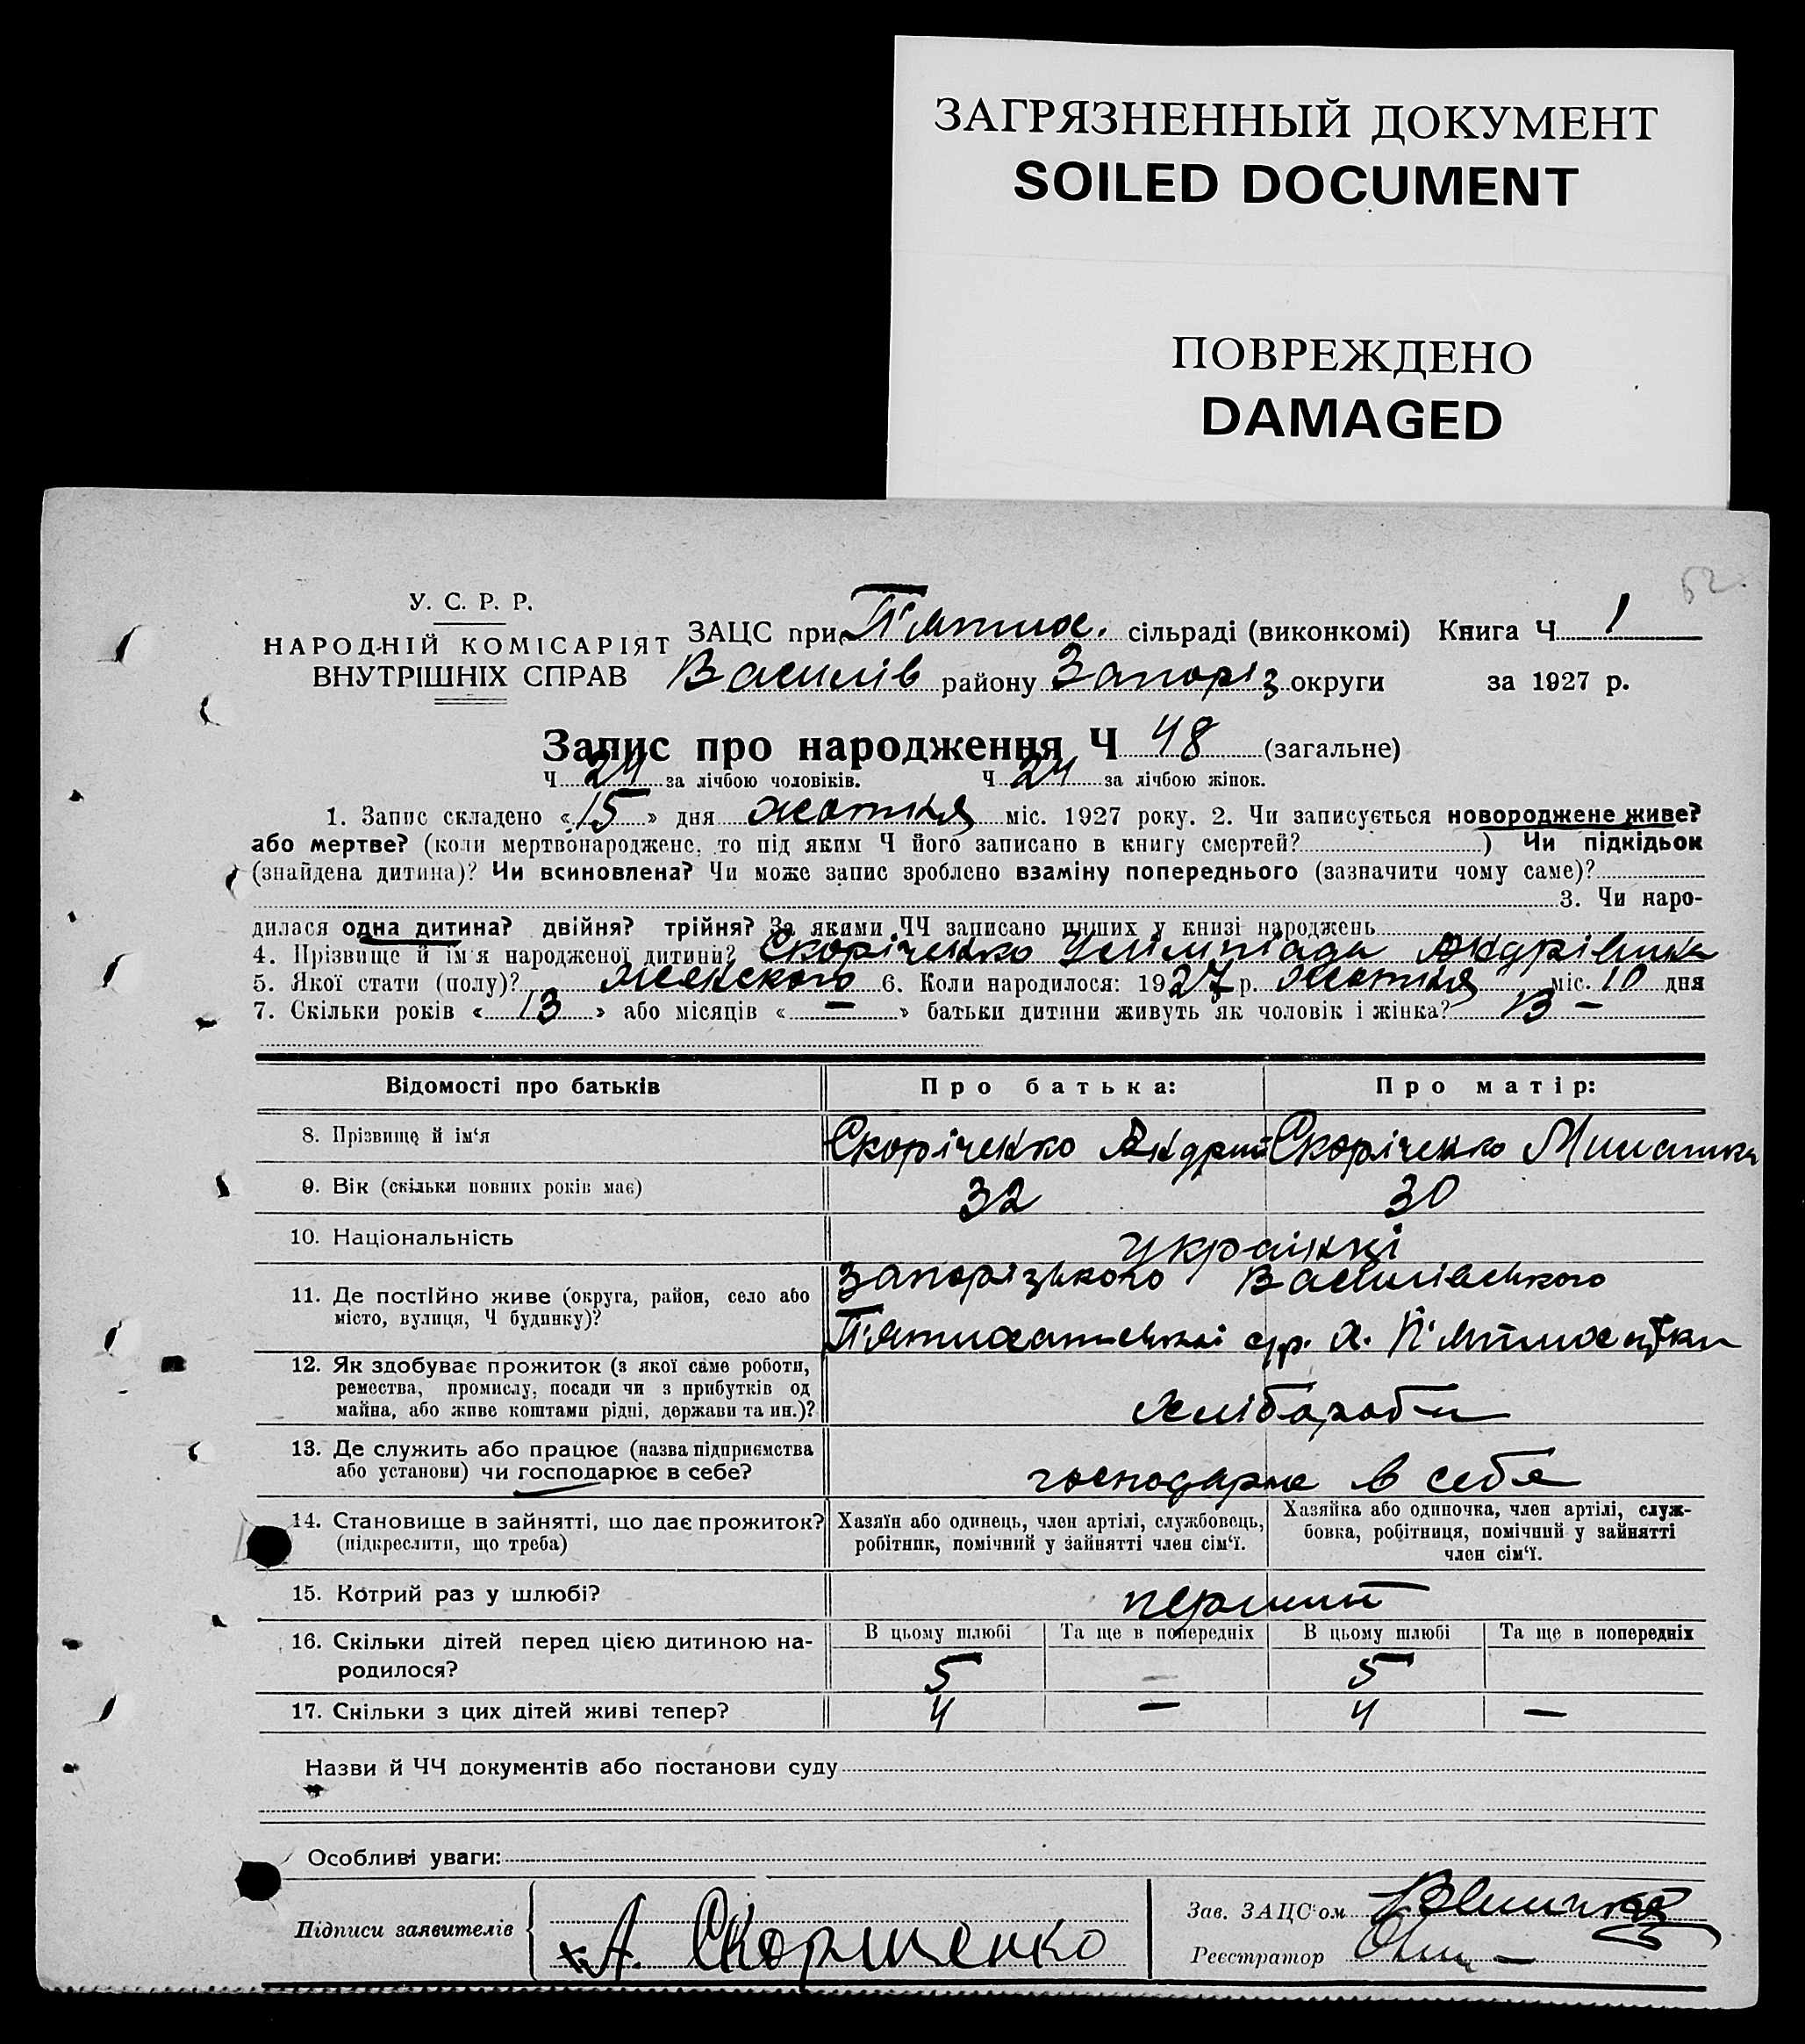 ЗАГРЯЗНЕННЫЙ ДОКУМЕНТ
SOILED DOCUMENT
ПОВРЕЖДЕНО
DAMAGED
52.
У. С. Р. Р.
НАРОДНІЙ КОМІСАРІЯТ
ВНУТРІШНІХ СПРАВ
ЗАЦС при П'ятих. сільраді (виконкомі) Книга Ч 1
Василів району Запоріз округи за 1927 р.
Запис про народження Ч 48 (загальне)
Ч 24 за лічбою чоловіків. Ч 24 за лічбою жінок.
1. Запис складено « 15 » дня жотня міс. 1927 року. 2. Чи записується новороджене живе?
або мертве? (коли мертвонароджене, то під яким Ч його записано в книгу смертей? ) Чи підкідьок
(знайдена дитина)? Чи всиновлена? Чи може запис зроблено взаміну попереднього (зазначити чому саме)?
3. Чи наро-
дилася одна дитина? двійня? трійня? За якими ЧЧ записано инших у книзі народжень
4. Прізвище й ім'я народженої дитини? Скоріченко Улімпіада Андрівна
5. Якої стати (полу)? женского 6. Коли народилося: 1927 р. жотня міс. 10 дня
7. Скільки років « 13 » або місяців « — » батьки дитини живуть як чоловік і жінка? 13 –
Відомості про батьків Про батька: Про матір:
8. Прізвище й ім'я Скоріченко Андрій Скоріченко
9. Вік (скільки повних років має) 32 30
10. Національність українці
11. Де постійно живе (округа, район, село або Запорізького Василівського
місто, вулиця, Ч будинку)? П'ятихатської с/р. х. П'ятихатки
12. Як здобуває прожиток (з якої саме роботи,
ремества, промислу, посади чи з прибутків од
майна, або живе коштами рідні, держави та ин.)? Хлібороби
13. Де служить або працює (назва підприємства
або установи) чи господарює в себе? господарює в себе
14. Становище в зайнятті, що дає прожиток?
(підкреслити, що треба)
Хазяїн або одинець, член артілі, службовець,
робітник, помічний у зайнятті член сім'ї.
Хазяйка або одиночка, член артілі, служ-
бовка, робітниця, помічний у зайнятті
член сім'ї.
15. Котрий раз у шлюбі? перший
16. Скільки дітей перед цією дитиною на-
родилося?
В цьому шлюбі Та ще в попередніх В цьому шлюбі Та ще в попередніх
5 – 5
17. Скільки з цих дітей живі тепер? 4 — 4 —
Назви й ЧЧ документів або постанови суду
Особливі уваги:
Підписи заявителів А. Скориченко
Зав. ЗАЦС'ом
Реєстратор